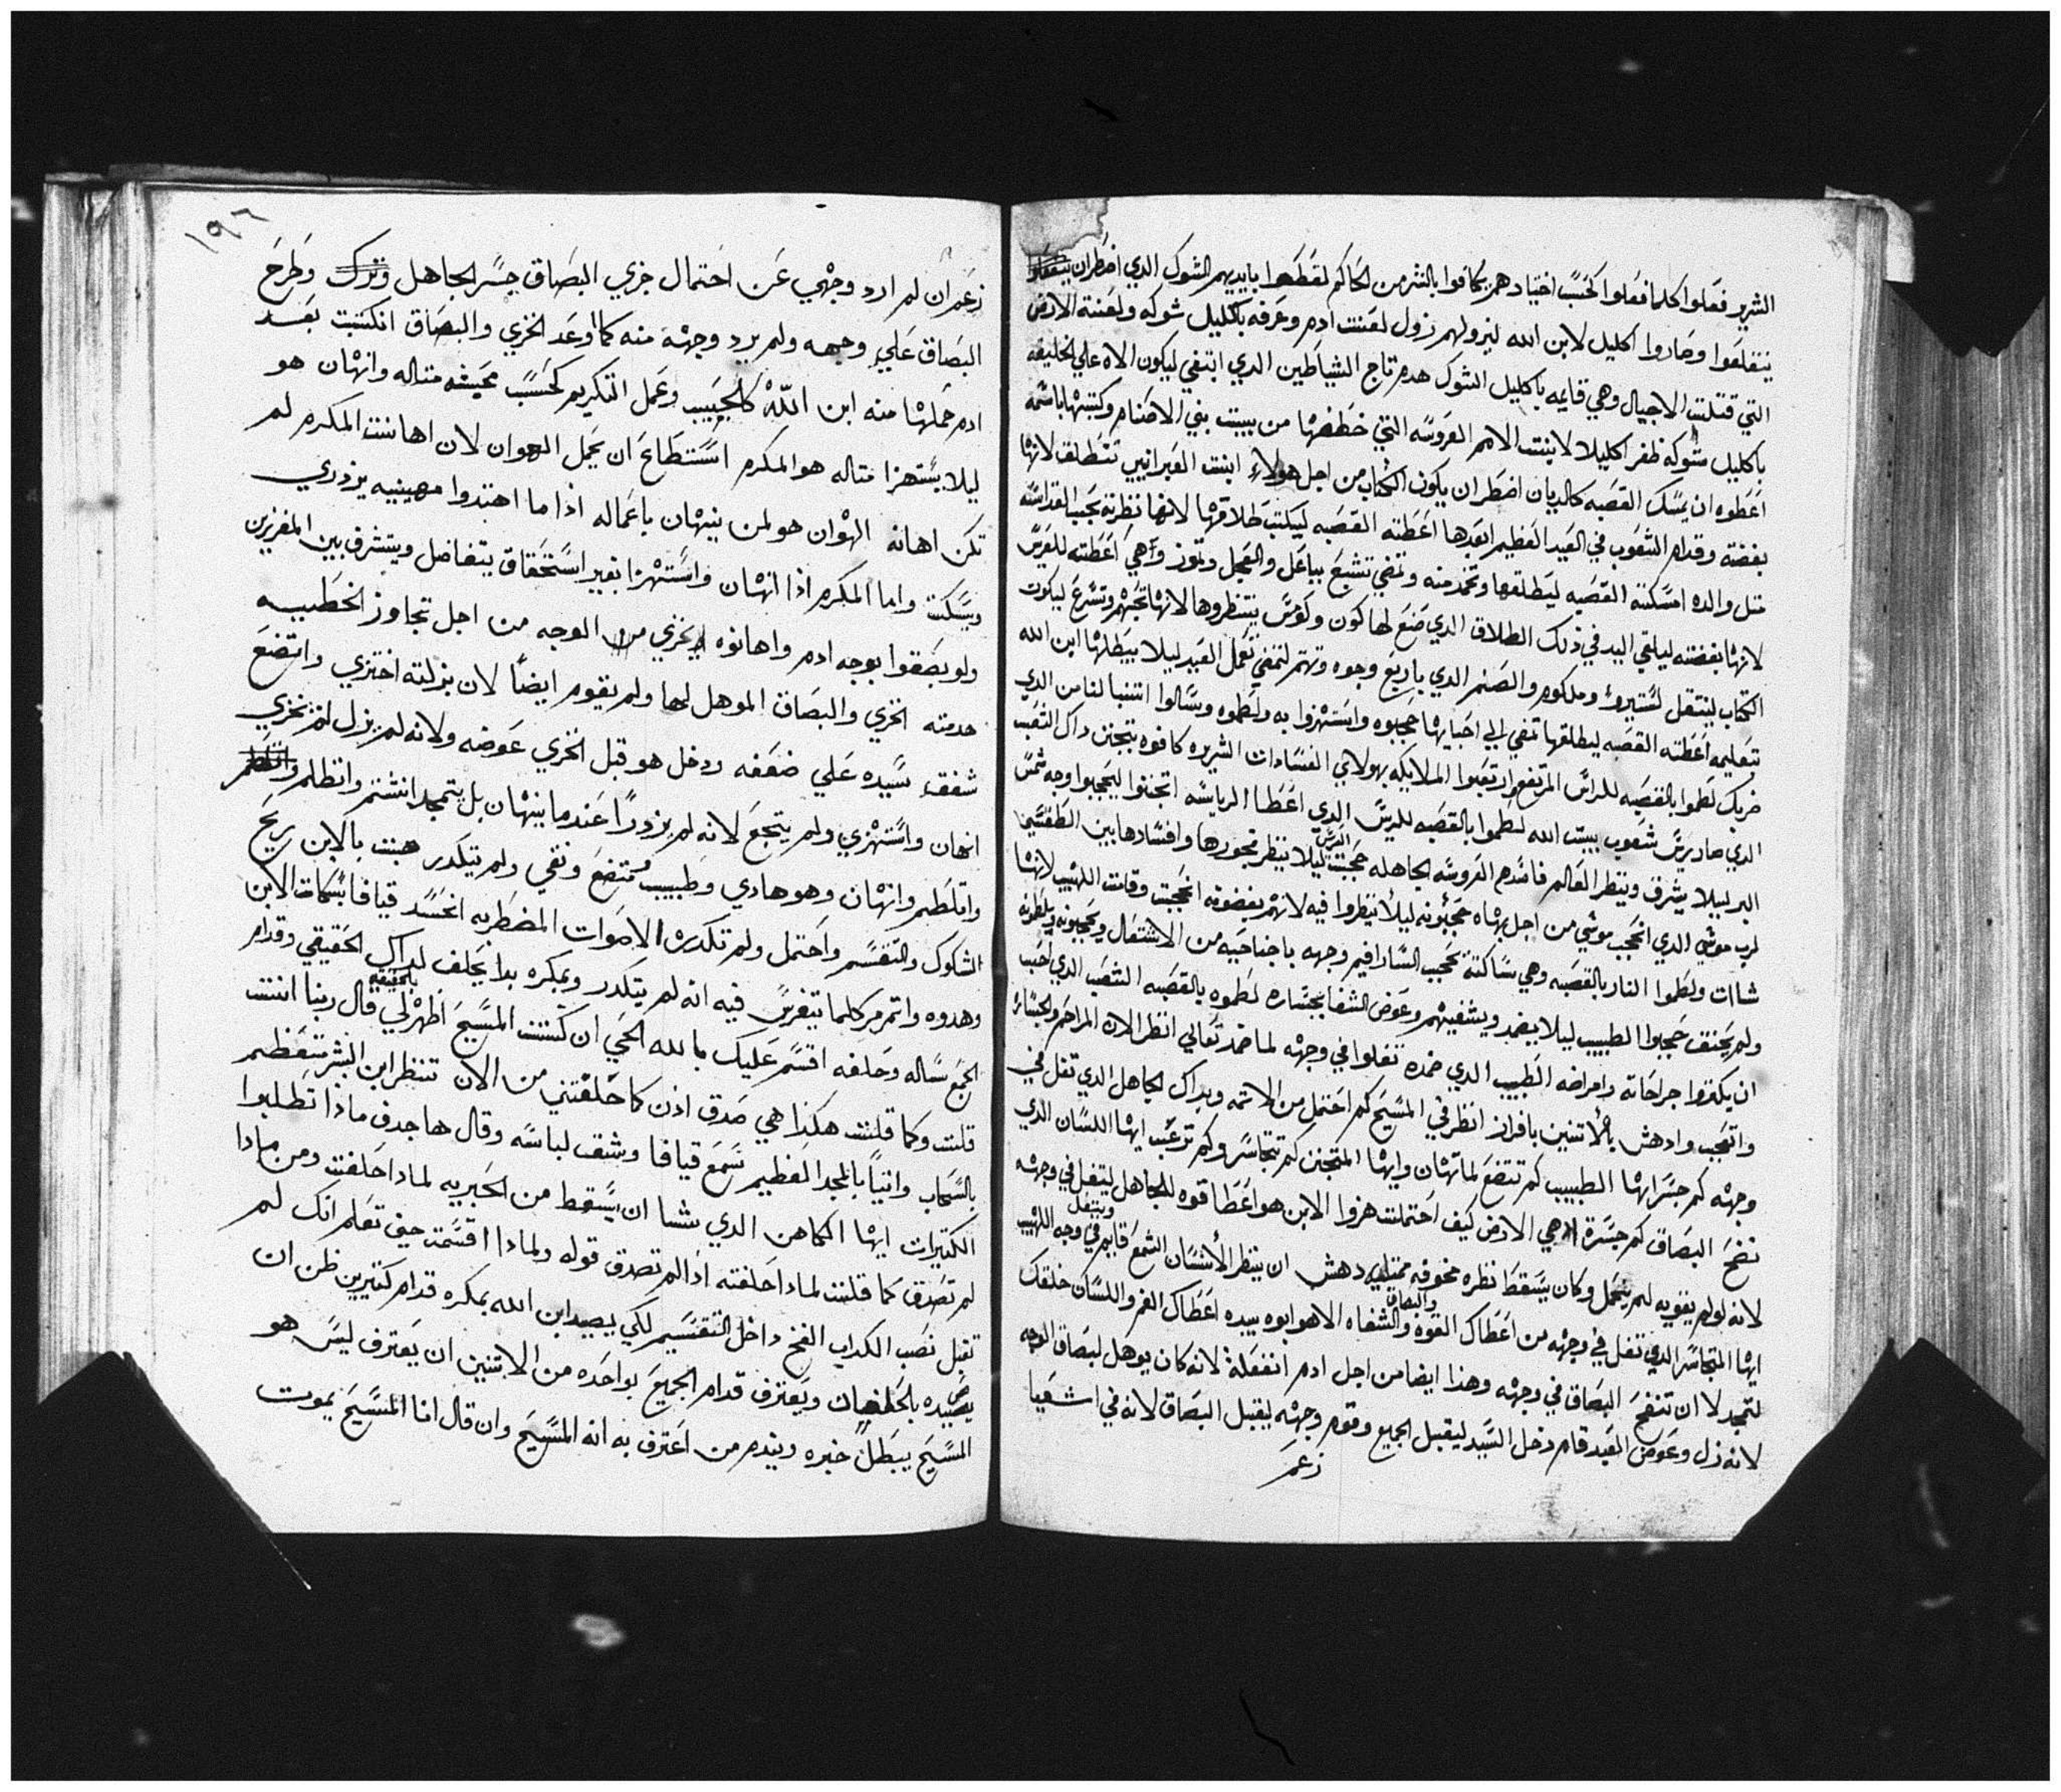 الشرير فعلوا كلما فعلوا كحسب اختيادهم بكافوا بالشر من الحاكم لقطعوا بايديهم الشوك الدي اضطر ان
ينقلعوا وصاروا اكليل لابن الله ليزولهم زول لعنت ادم وعرفه باكليل شوكه ولعنة الارض
التي قتلت الاجيال وهي قايمه باكليل الشوك هدم تاج الشياطين الدي ابتغي ليكون الاه علي الخليقه
باكليل شوكه ظفر اكليلا لابنت الامم العروسه التي خطفها من بيت بني الاصنام وكتبها باسمه
اعطوه ان يمسك القصبه كالديان اضطر ان يكون الكتاب من اجل هولاء ابنت العبرانيين تتطلق لانها
بغضته وقدام الشعوب في العيد العظيم ابعدها اعطته القصبه ليكتب طلاقها لانها نظرته بحبيبا لقداسته
متل والده امسكته القصبه ليطلقها وتخد منه وتمضي تشبع بباعل والعجل وتموز وهي اعطته للعرس
لانها بغضته ليلقي اليد في ذلك الطلاق الدي صنع لها كون وكوس ينتظروها لانها تحبهم وتسرع ليكون
الكتاب ينتقل لشتيرو وملكوم والصنم الدي باربع وجوه وتهتم لتمضي تعمل العيد ليلا يبطلها ابن الله
تتعليمه اعطته القصبه ليطلقها تمضي الي احبايها حجبوه واستهزوا به ولطموه وسالوا اتنبا لنا من الدي
ضربك لطموا بالقصبه للراس المرتفع وارتعبوا الملايكه بهولاي الفسادات الشريره كافوه بتجنن داك الشعب
الدي صار يرس شعوب ببيت الله لطموا بالقصبه للريس الدي اعطا الرياسه اتجننوا ليحجبوا وجه شمس
البر ليلا يشرق وينظر العالم فاسدهم العروسه الجاهله حجبت العرس ليلا ينظر فجورها وافسادها بين الطقسين
لرب موشي الدي انحجب موشي من اجل بهاه حجبونه ليلا ينظروا فيه لانهم بغضوته انحجبت وقامت اللهيب لانها
شات ولطموا النار بالقصبه وهي ساكته تحجب السارافيم وجهه باجناحيه من الاشتعال ويحجبونه ويلطونه
ولم يختنق حجبوا الطبيب ليلا يضمد ويشفيهم وعوض الشفا بجساره لطموه بالقصبه الشعب الدي احب
ان يكتروا جراحاته وامراضه الطبيب الدي ضمده تفلوا في وجهه لما ضمد تعالي انظر الان المراحم والجساره
واتعجب وادهش بالاتنين بافراز انظر في المسيح كم احتمل من الامته وبداك الجاهل الدي تفل في
وجهه كم جسر ايها الطبيب كم تتضع لما تهان وايها المتجنن كم تتجاسر وكم ترعب ايها اللسان الدي
نضح البصاق كم جسرة هي الارض كيف احتملت هزوا الابن هو اعطا قوه للجاهل ليتفل في وجهه
لانه لو لم يقويه لم يتحمل وكان يسقط نظره مخوفه ممتليه دهش ان ينظر الانسان الشمع قايم ويتفل في وجه اللهيب
ايها المتجاسر الدي تفل في وجهه من اعطاك القوه والبصاق والشفاه الا هو ابوه بيده اعطاك الفم واللسان خلقك
لتمجد لا ان تنضح البصاق في وجهه وهذا ايضا من اجل ادم انفعله لانه كان يوهل لبصاق الوجه
لانه زل وعوض العبد قام دخل السيد ليقبل الجميع وقوم وجهه يقبل البصاق لانه في اشعيا
زعم
١٩٦
زعم ان لم ارد وجهي عن احتمال خزي البصاق جسر الجاهل وطرح
البصاق علي وجهه ولم يرد وجهه منه كما اوعد الخزي والبصاق انكتبت بعد
ادم حملها منه ابن الله كالحبيب وعمل التكريم كحسب محيشه متاله وانهان هو
ليلا يستهزا متاله هو المكرم استطاع ان يحمل الهوان لان اهانت المكرم لم
تكن اهانه الهوان هو لمن ينهان باعماله اذا ما اهتدوا مهينيه يزدري
ويسكت واما المكرم اذا انهان واستهزا بغير استحقاق يتفاضل ويتشرف بين المفرزين
ولو بصقوا بوجه ادم واهانوه لخزي من الوجه من اجل تجاوز الخطييه
خدمته الخزي والبصاق الموهل لها ولم يقوم ايضا لان بزلته اختزي واتضع
شفق سيده علي ضعفه ودخل هو قبل الخزي عوضه ولانه لم يزل لم يخزي
انهان واستهزي ولم يتجع لانه لم يزدرا عندما ينهان بل يتمجد انشتم وانظلم
واتلطم وانهان وهو هادي وطبيب متضع ونقي ولم يتكدر هبت بالابن ريح
الشكوك والتقسم واحتمل ولم تكدره الاصوات المضطربه انحسد قيافا بسكات الابن
وهدوه واتمرمر كلما تيفرس فيه انه لم يتكدر وبمكره بدا يحلف لداك الحقيقي وقدام
الجمع ساله وحلفه اقسم عليك بالله الحي ان كنت المسيح اظهر لي بالحقيقه قال ربنا انت
قلت وكما قلت هكذا هي صدق اذن كما حلفتني من الان تنظر ابن البشر بتعظيم
بالسحاب واتيا بالمجد العظيم سمع قيافا وشق لباسه وقال ها جدف ماذا تطلبوا
الكتيرات ايها الكاهن الدي شا ان يسقط من الحبريه لمادا حلفت ومن مادا
لم تصدق كما قلت لمادا حلفته اذا لم تصدق قوله ولماذا اقسمته حين تعلم انك لم
تقبل نصب الكداب الفخ داخل التقسيم لكي يصيد ابن الله بمكره قدام كتيرين ظن ان
يصيده ويعترف قدام الجميع بواحده من الاتنين ان يعترف ليس هو
المسيح يبطل خبره ويندم من اعترف به انه المسيح وان قال انا المسيح يموت